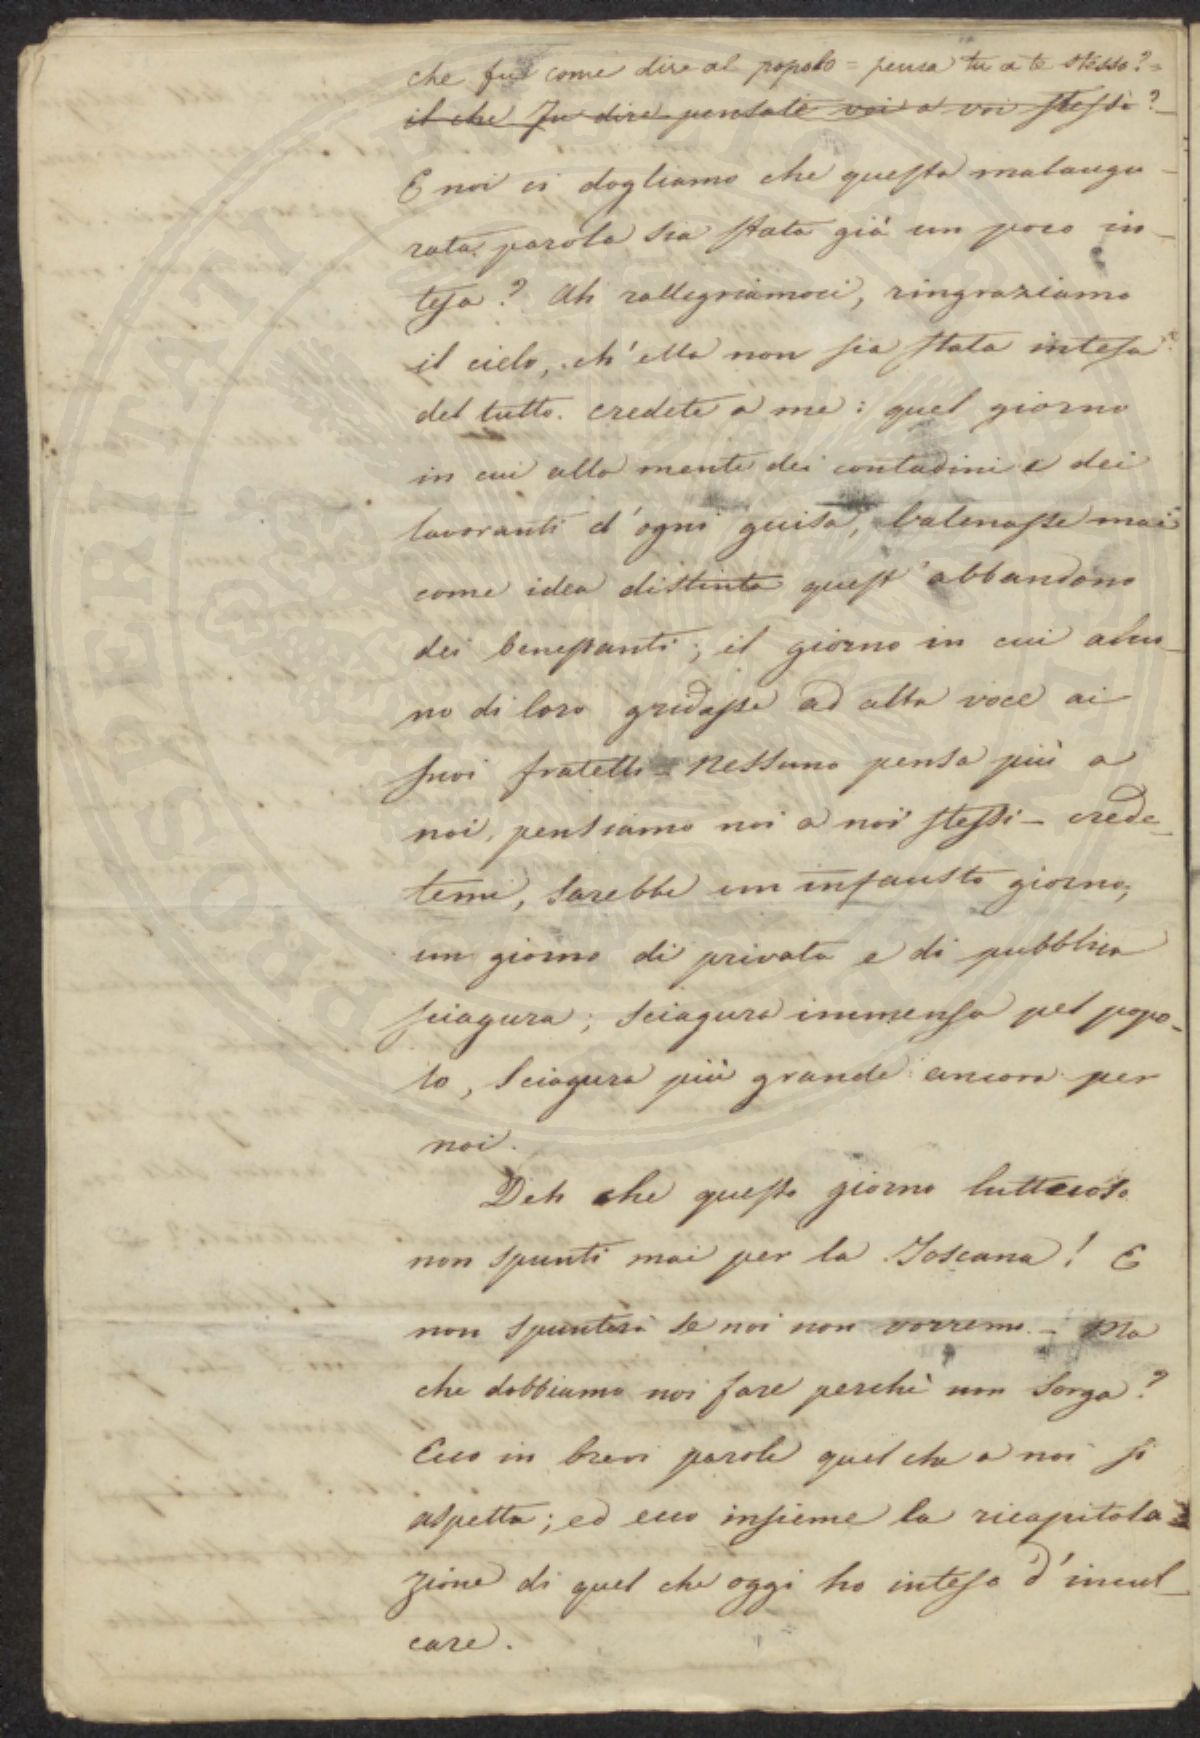 che fu come dire al popolo = pensa tu a te stesso? =
il che fu dire pensate voi a voi stessi? _
E noi ci dogliamo che questa malaugu-
rata parola sia stata già un poco in-
tesa? Ah rallegriamoci, ringraziamo
il cielo, ch'ella non sia stata intesa
del tutto. Credete a me: quel giorno
in cui alla mente dei contadini e dei
lavoranti d'ogni guisa, balenasse mai
come idea distinta quest'abbandono
dei benestanti; il giorno in cui alcu-
no di loro gridasse ad alta voce ai
suoi fratelli – Nessuno pensa più a
noi, pensiamo noi a noi stessi – crede-
temi, sarebbe un infausto giorno,
un giorno di privata e di pubblica
sciagura; sciagura immensa pel popo-
lo, sciagura più grande ancora per
noi.
Deh che questo giorno luttuoso
non spunti mai per la Toscana! E
non spunterà se noi non vorremo. – Ma
che dobbiamo noi fare perchè non sorga?
Ecco in brevi parole quel che a noi si
aspetta; ed ecco insieme la ricapitola
zione di quel che oggi ho inteso d'incul-
care.
PROSPERITATI